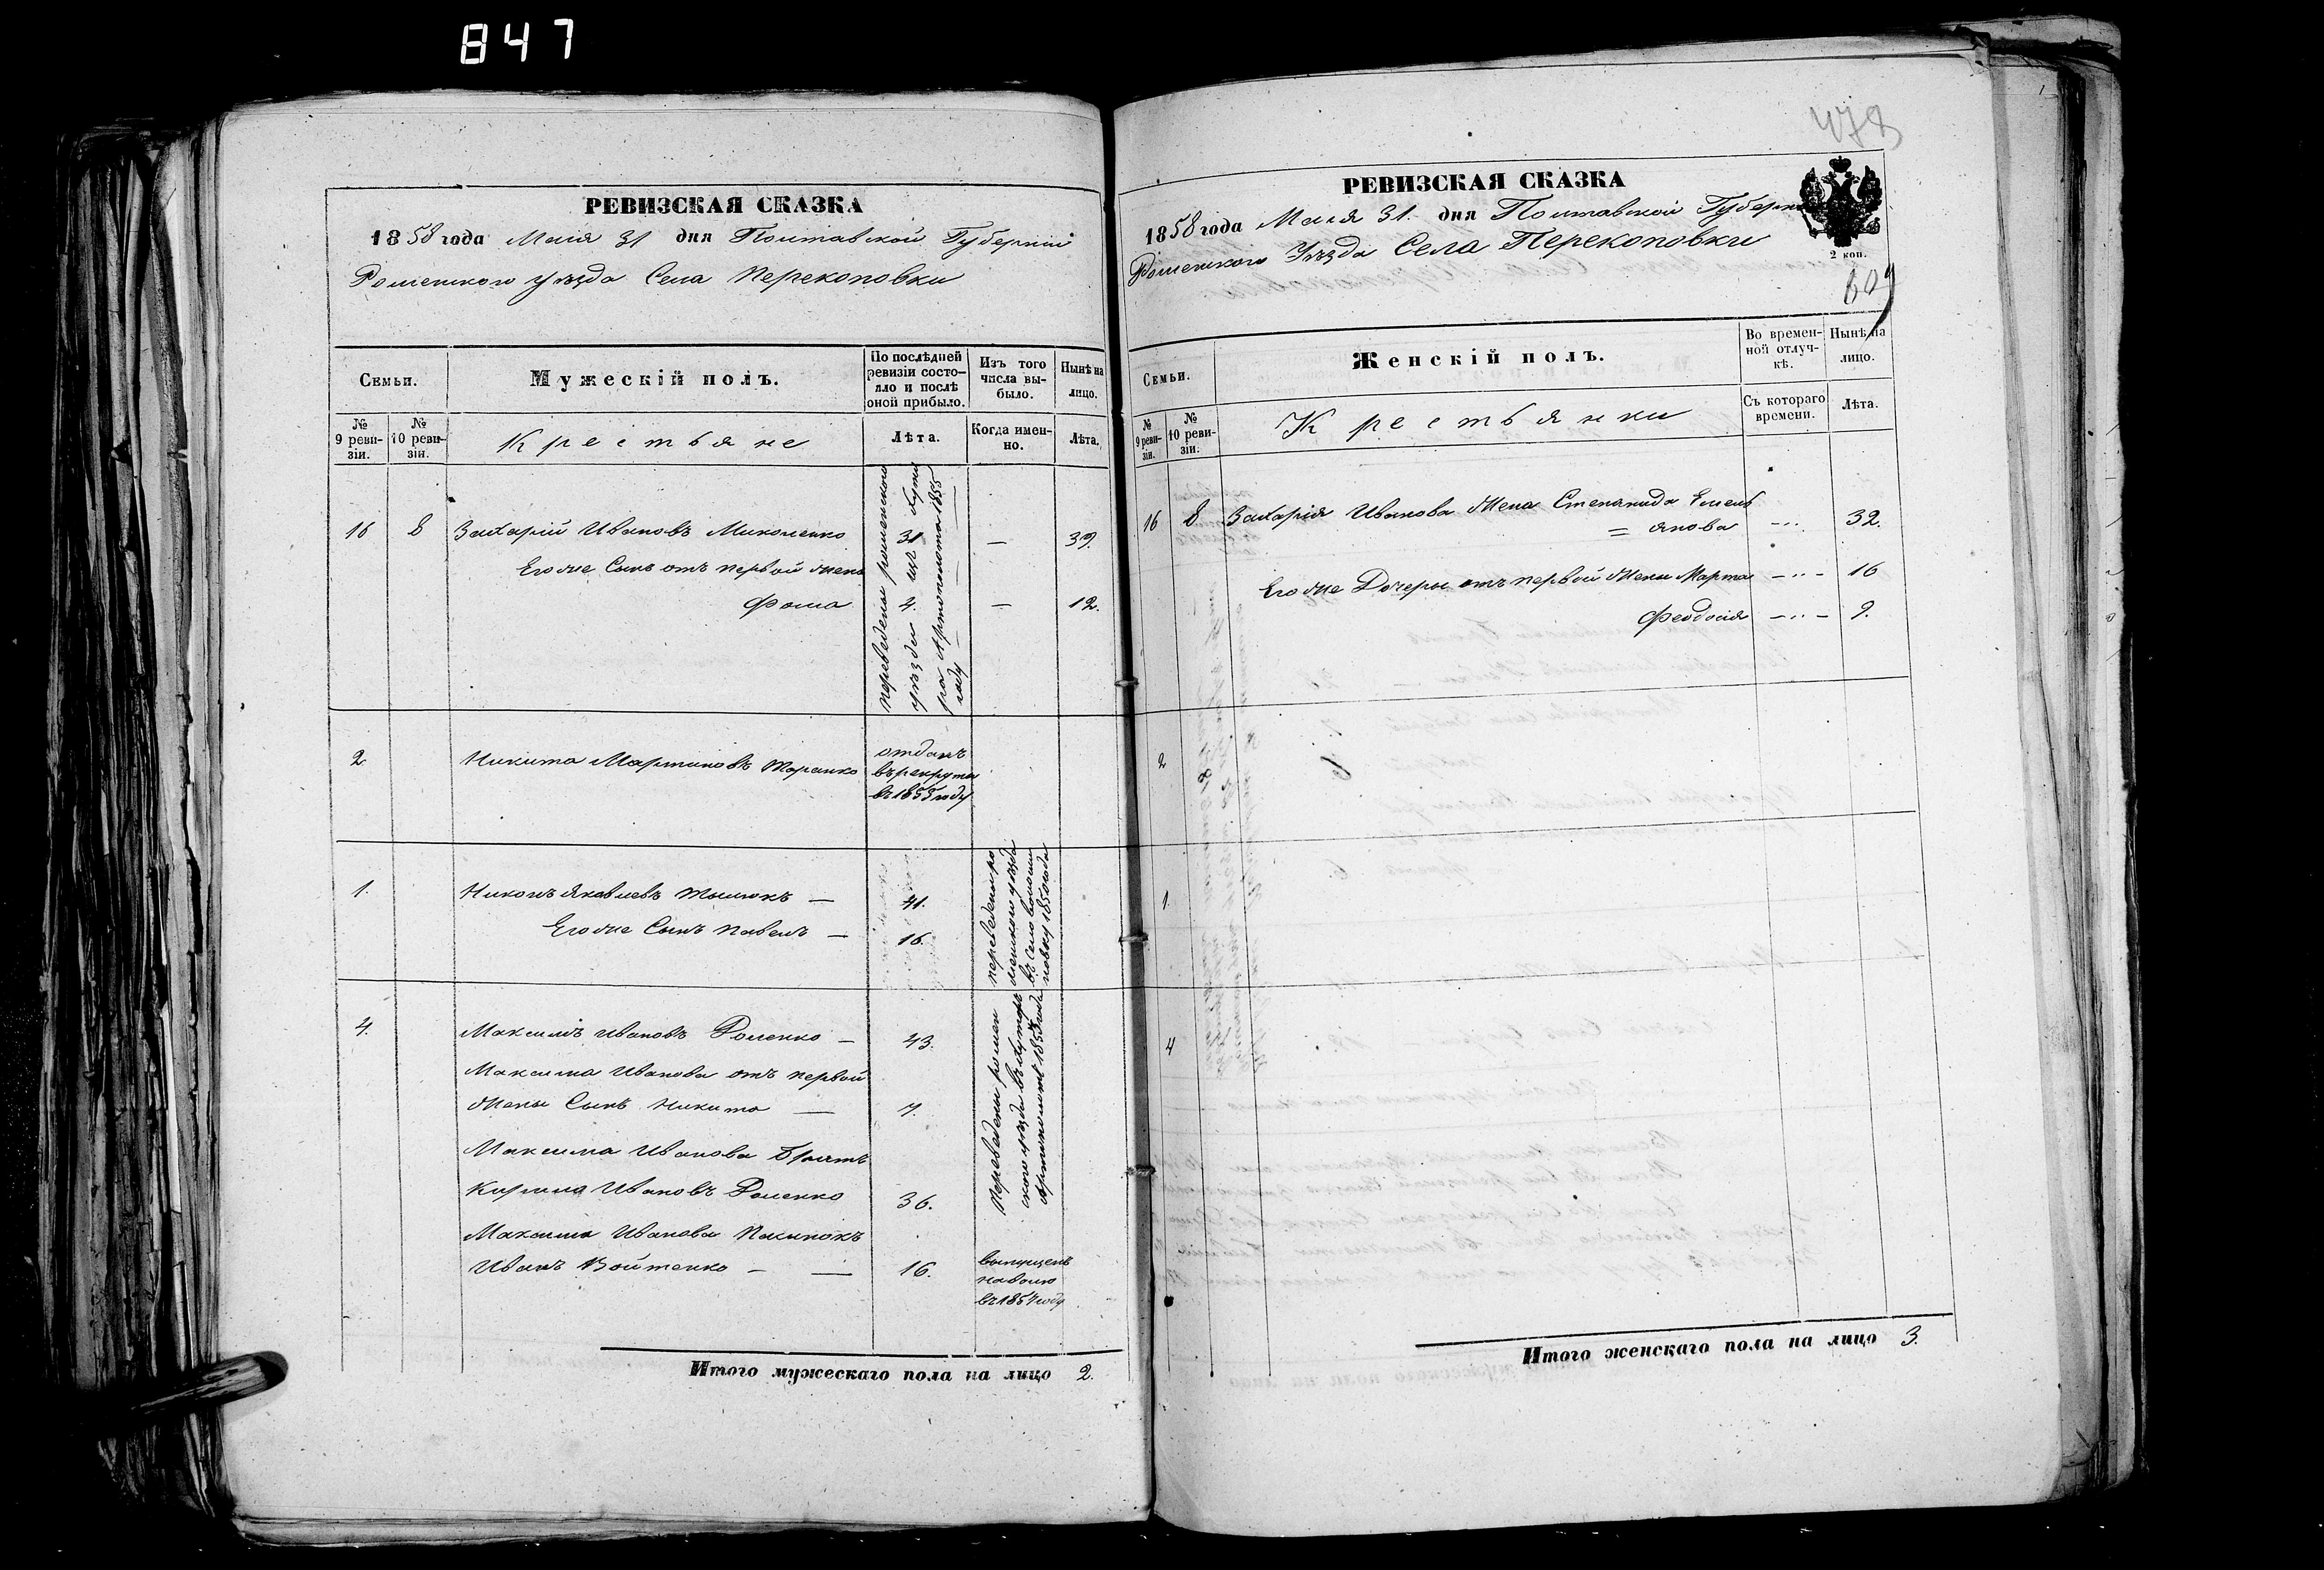 847
РЕВИЗСКАЯ СКАЗКА
1858 года Маія 31 дня Полтавской Губерніи
Роменскаго уѣзда Села Перекоповки
Семьи.
Мужескій полъ.
По послѣдней ревизіи состояло и послѣ оной прибыло.
Изъ того числа выбыло.
Нынѣ на лицо.
№ 9 ревизіи.
№ 10 ревизіи.
Крестьяне
Лѣта.
Когда именно.
Лѣта.
16 8 Захарій Ивановъ Миконенко 31 — 39.
Его же Сынъ отъ первой жены
Фома 4. — 12.
переведены роменскаго
уѣзда изъ хуто
ра Артополота 1855
году
2 Никита Мартиновъ Таранко
отданъ
въ рекруты
въ 1855 году
1. Никонъ Яковлевъ — 41.
Его же Сынъ Павелъ — 16.
переведены ро
менского уѣзда
въ Село
новку 1850 года
4. Максимъ Ивановъ Роменко — 43.
Максима Иванова отъ первой
жены Сынъ Никита — 7.
Максима Иванова братъ
Кирила Ивановъ Роменко 36.
Переведены ромен
ского уѣзда въ хуторъ
Артополотъ 1853 года
Максима Иванова
Иванъ Войтенко — — 16.
выпущенъ
на волю
въ 1857 году
Итого мужескаго пола на лицо 2.
478
РЕВИЗСКАЯ СКАЗКА
1858 года Маія 31. дня Полтавской Губерніи
Роменскаго Уѣзда Села Перекоповки
2 коп.
609
Семьи.
Женскій полъ.
Во временной отлучкѣ.
Нынѣ на лицо.
№ 9 ревизіи.
№ 10 ревизіи.
Крестьянки
Съ котораго времени.
Лѣта.
16 8 Захарія Иванова Жена Степанида Емель
= янова 32.
Его же Дочеры отъ первой жены Марта 16
Феодосія 9.
2
1
4
Итого женскаго пола на лицо 3.